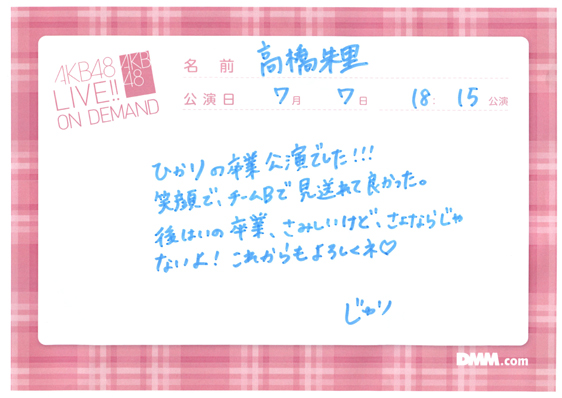 AKB48
LIVE!!
ON DEMAND
AKB
48
名前 高橋朱里
公演日 7月 7日 18:15 公演
ひかりの卒業公演でした!!!
笑顔で、チームBで見送れて良かった。
後はいの卒業、さみしいけど、さよならじゃ
ないよ! これからもよろしくネ♡
じゅり
DMM.com